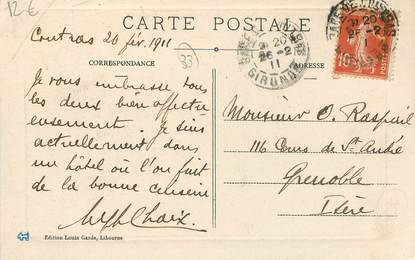 12 €
CARTE POSTALE
Coutras 26 fév. 1911
33
CORRESPONDANCE
ADRESSE
GIRONDE
20
26-2
11
GARE DE
20
10
Je vous embrasse tous
les deux bien affectu
eusement. Je suis
actuellement dans
un hôtel où l'on fait
de la bonne cuisine
Monsieur O. Raspail
116 Cours de St André
Grenoble
Isère
Edition Louis Garde, Libourne